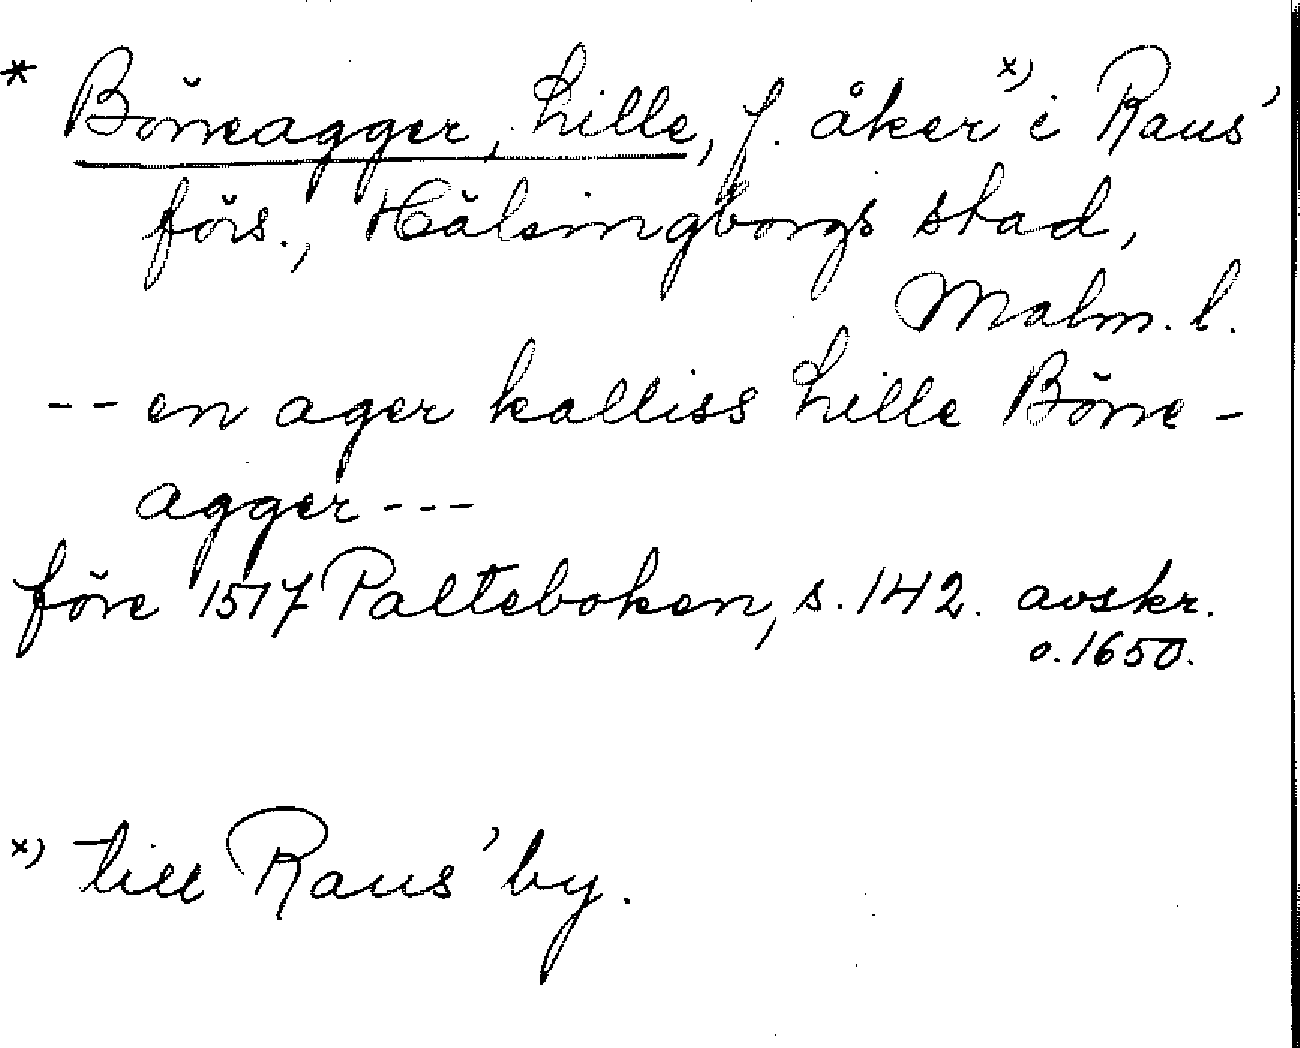 * Börreagger, Lille, f. åker x) i Raus'
förs., Hälsingborgs stad,
Malm. l.
-- en ager kalliss Lille Börre-
agger ---
före 1517 Palteboken, s. 142. avskr.
o. 1650.
x) till Raus' by.